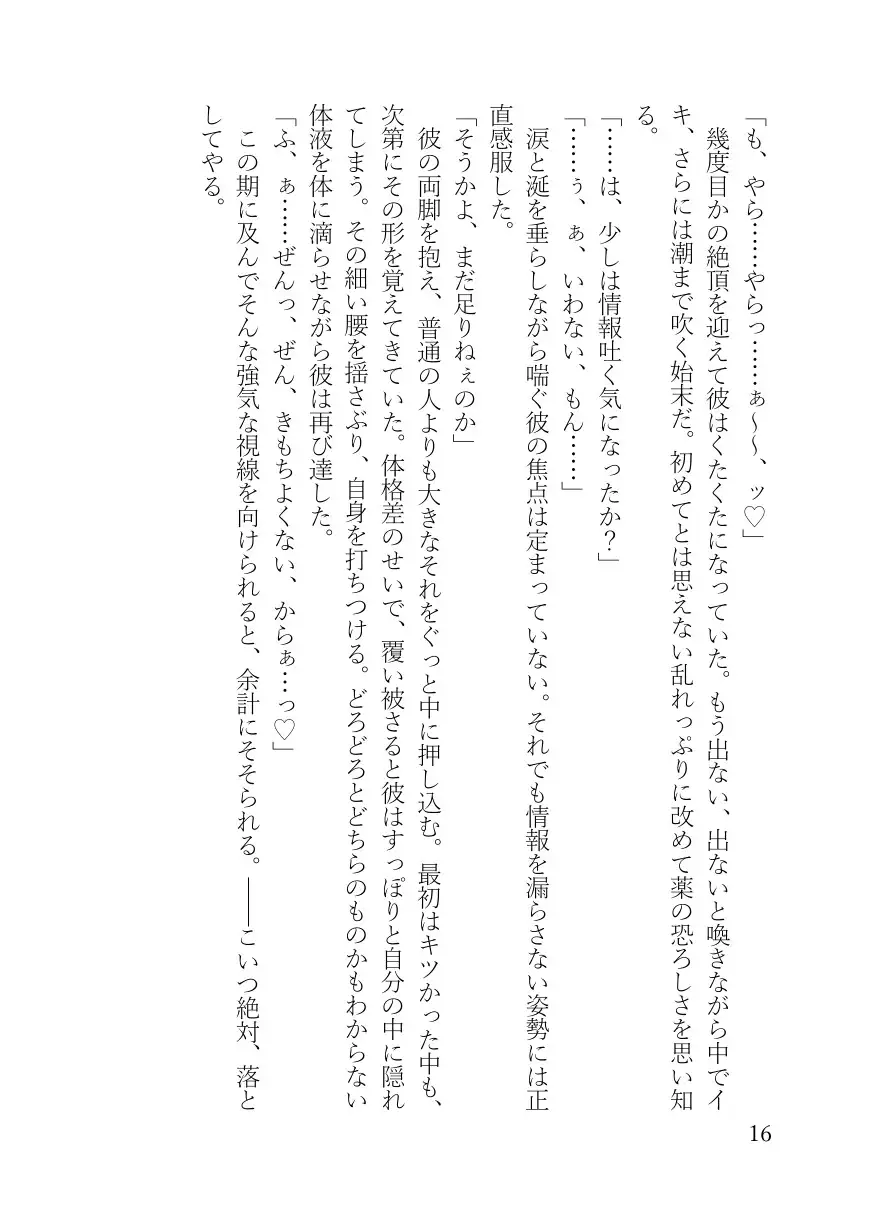 「も、やら……やらっ……ぁ～～、ッ♡」
幾度目かの絶頂を迎えて彼はくたくたになっていた。もう出ない、出ないと喚きながら中でイ
キ、さらには潮まで吹く始末だ。初めてとは思えない乱れっぷりに改めて薬の恐ろしさを思い知
る。
「……は、少しは情報吐く気になったか？」
「……ぅ、ぁ、いわない、もん……」
涙と涎を垂らしながら喘ぐ彼の焦点は定まっていない。それでも情報を漏らさない姿勢には正
直感服した。
「そうかよ、まだ足りねぇのか」
彼の両脚を抱え、普通の人よりも大きなそれをぐっと中に押し込む。最初はキツかった中も、
次第にその形を覚えてきていた。体格差のせいで、覆い被さると彼はすっぽりと自分の中に隠れ
てしまう。その細い腰を揺さぶり、自身を打ちつける。どろどろとどちらのものかもわからない
体液を体に滴らせながら彼は再び達した。
「ふ、ぁ……ぜんっ、ぜん、きもちよくない、からぁ…っ♡」
この期に及んでそんな強気な視線を向けられると、余計にそそられる。――こいつ絶対、落と
してやる。
16